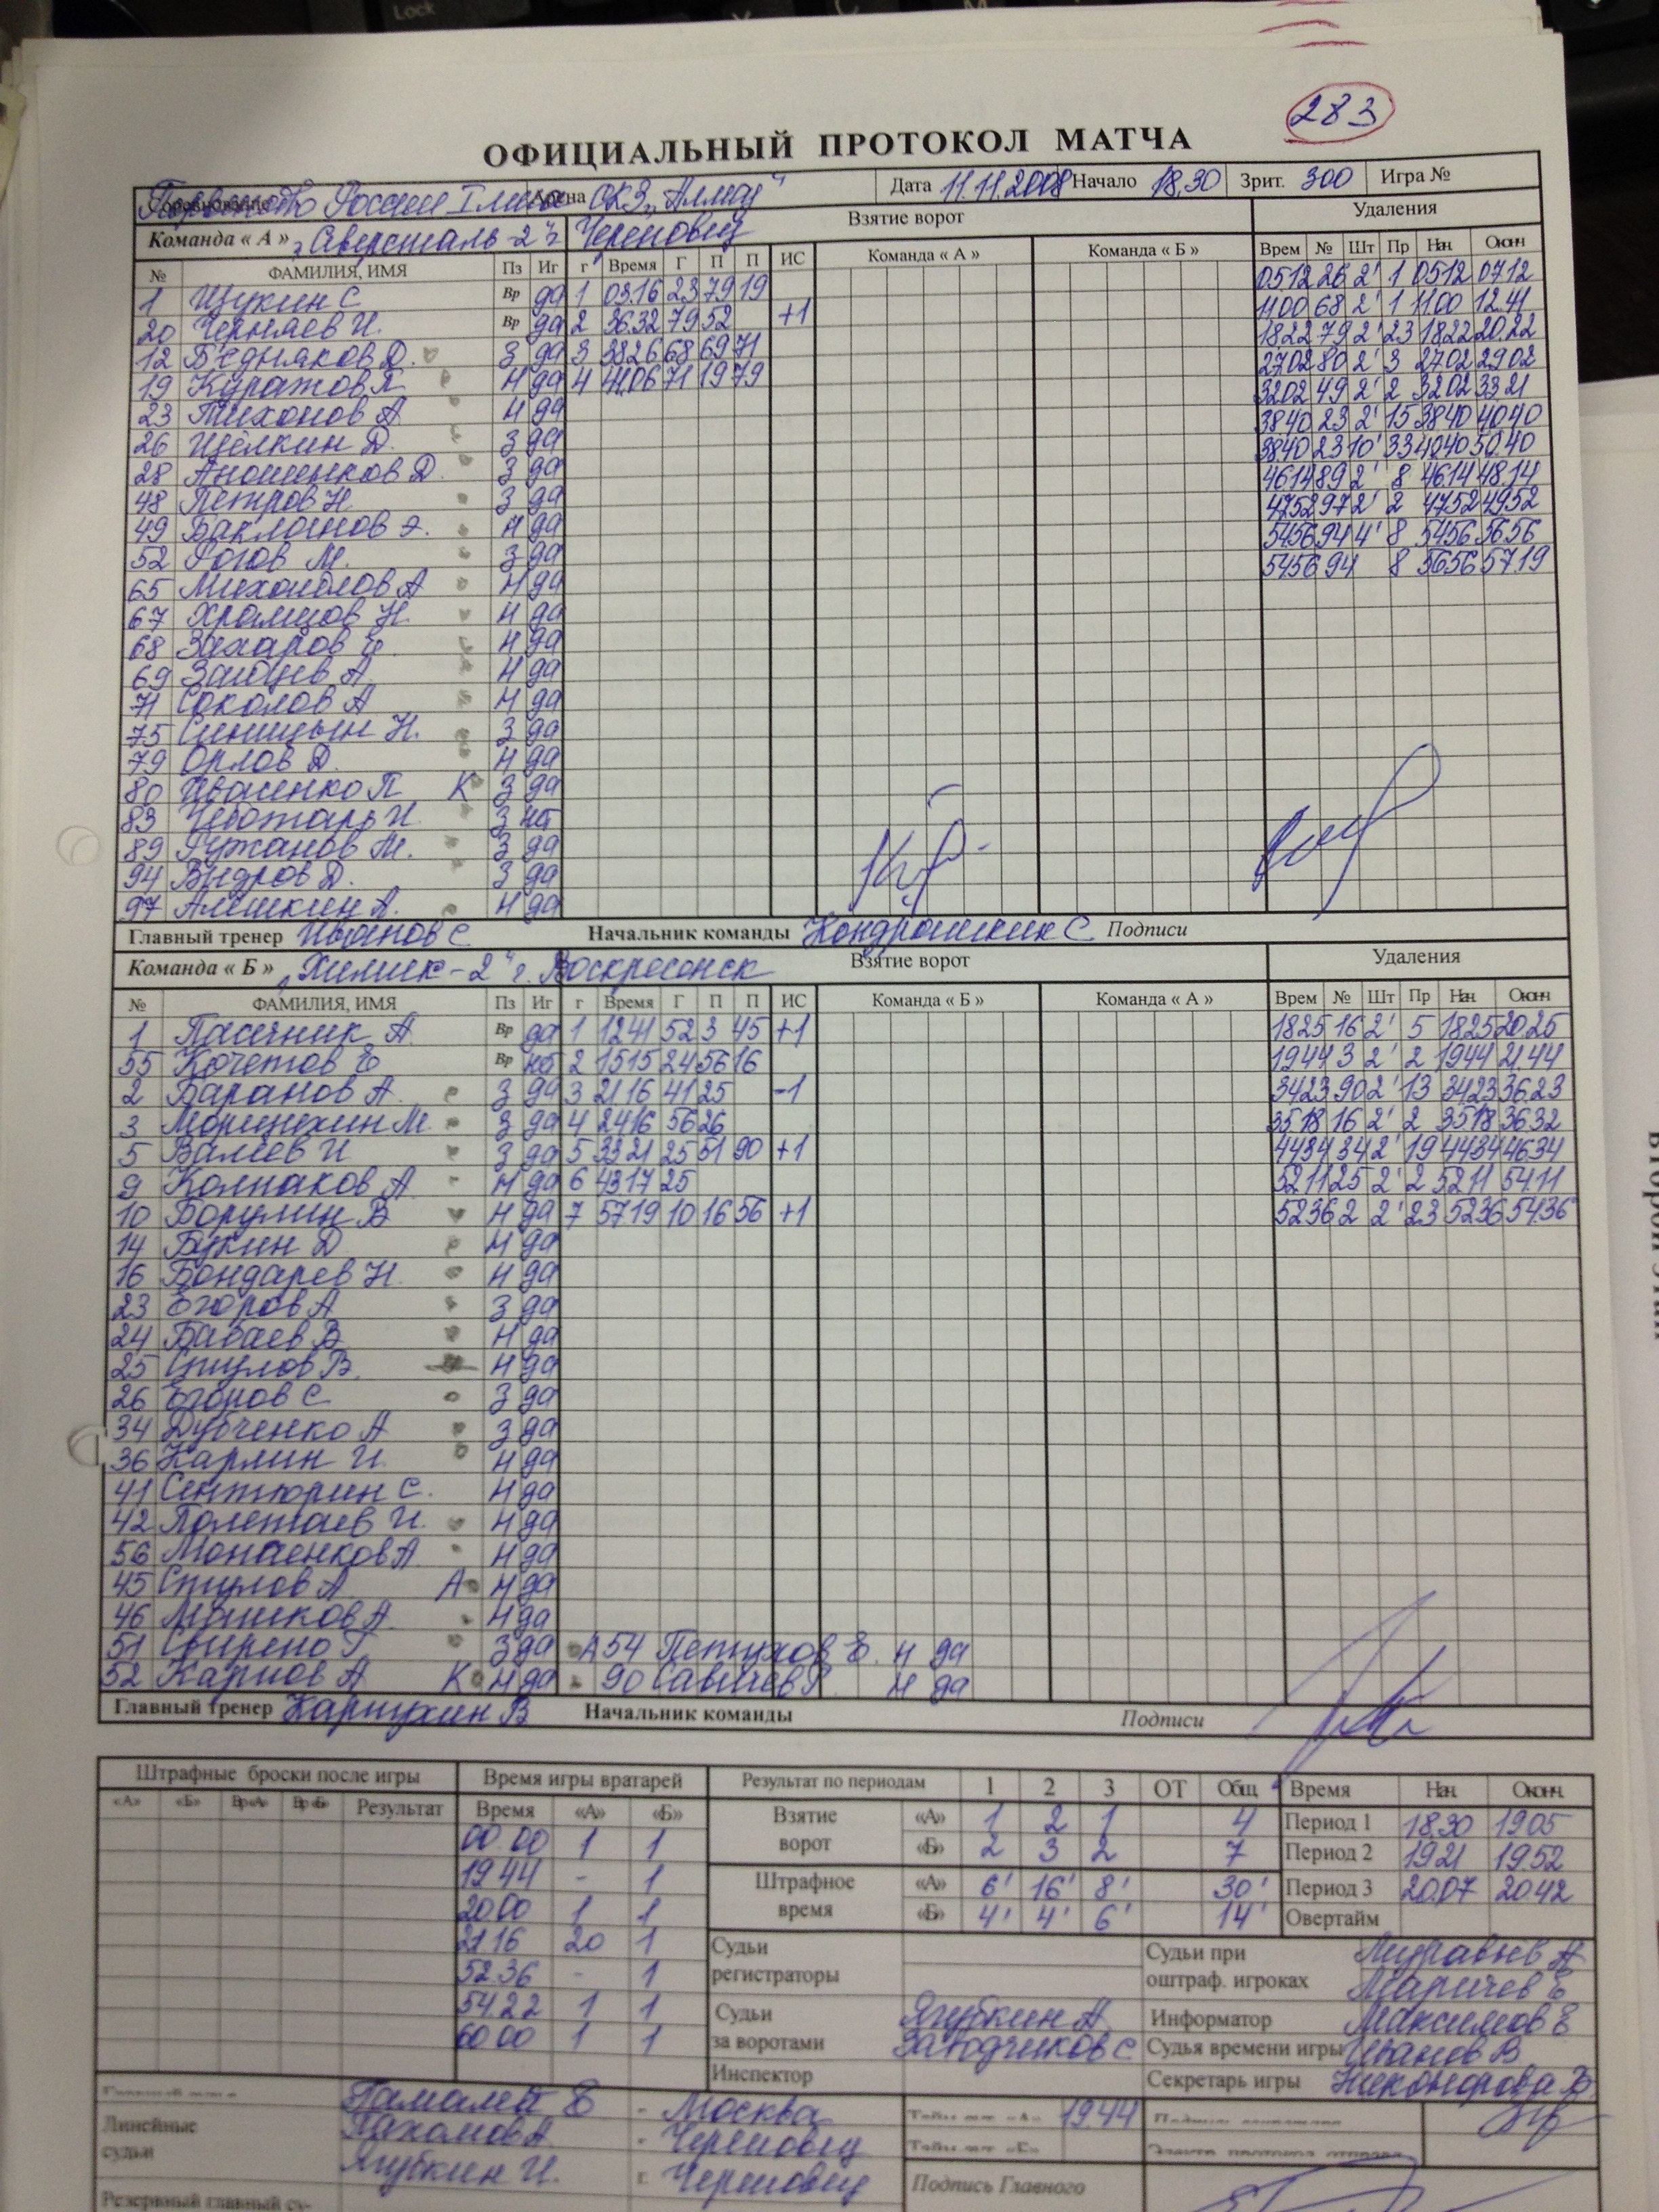 283
ОФИЦИАЛЬНЫЙ ПРОТОКОЛ МАТЧА
Первенство России I лига Арена СКЗ „Алмаз" Дата 11.11.2008 Начало 18.30 Зрит. 300 Игра №
Команда « А » „Северсталь-2" г. Череповец Взятие ворот Удаления
№ ФАМИЛИЯ, ИМЯ Пз Иг г Время Г П П ИС Команда « А » Команда « Б » Врем № Шт Пр Нач. Оконч
1 Щукин С Вр да 1 03.16 23 79 19 05.12 26 2' 1 05.12 07.12
20 Черняев И. Вр да 2 36.32 79 52 +1 11.00 68 2' 1 11.00 12.41
12 Бедняков Д. З да 3 38.26 68 69 71 18.22 79 2' 23 18.22 20.22
19 Куражов Н да 4 41.06 71 19 79 27.02 80 2' 3 27.02 29.02
23 Тихонов А Н да 32.02 49 2' 2 32.02 33.21
26 Щёлкин Д. З да 38.40 23 2' 15 38.40 40.40
28 Аношенков Д. З да 38.40 23 10' 33 40.40 50.40
48 Петров Н З да 46.14 89 2' 8 46.14 48.14
49 Баклашов Э. Н да 47.52 97 2' 2 47.52 49.52
52 Рогов М. З да 54.56 94 4' 8 54.56 56.56
65 Михайлов А Н да 54.56 94 8 56.56 57.19
67 Храмцов Н. Н да
68 Захаров Н да
69 Зайцев А Н да
71 Соколов А Н да
75 Синицын Н. З да
79 Орлов Д. Н да
80 Иваненко П К З да
83 Чеботарь И. З нет
89 Гужанов М. З да
94 Выдров Д. З да
97 Алёшкин А. Н да
Главный тренер Иванов С Начальник команды Кондрашкин С. Подписи
Команда « Б » „Химик-2" г. Воскресенск Взятие ворот Удаления
№ ФАМИЛИЯ, ИМЯ Пз Иг г Время Г П П ИС Команда « Б » Команда « А » Врем № Шт Пр Нач. Оконч
1 Пасечник А Вр да 1 12.41 52 3 45 +1 18.25 16 2' 5 18.25 20.25
55 Кочетов Е Вр нет 2 15.15 24 56 16 19.44 3 2' 2 19.44 21.44
2 Баранов А. З да 3 21.16 41 25 -1 34.23 90 2' 13 34.23 36.23
3 Морщихин М. З да 4 24.16 56 26 35.18 16 2' 2 35.18 36.32
5 Валеев И З да 5 33.21 25 51 90 +1 44.34 34 2' 19 44.34 46.34
9 Колпаков А Н да 6 43.17 25 52.11 25 2' 2 52.11 54.11
10 Борулин В Н да 7 57.19 10 16 56 +1 52.36 2 2' 23 52.36 54.36
14 Букин Д Н да
16 Бондарев Н. Н да
23 Егоров А З да
24 Бабаев В Н да
25 Стулов В. Н да
26 Егоров С З да
34 Дубченко А З да
36 Карлин И. Н да
41 Сентюрин С. Н да
42 Полетаев И. Н да
56 Мопаенков А Н да
45 Стулов А А Н да
46 Машков А. Н да
51 Свирепо Г З да А 54 Петухов Е. Н да
52 Карпов А К Н да 90 Савичев Г Н да
Главный тренер Карпухин В Начальник команды Подписи
Штрафные броски после игры Время игры вратарей Результат по периодам 1 2 3 ОТ Общ Время Нач. Оконч.
«А» «Б» Вр«А» Вр«Б» Результат Время «А» «Б» Взятие ворот «А» 1 2 1 4 Период 1 18.30 19.05
00.00 1 1 «Б» 2 3 2 7 Период 2 19.21 19.52
19.44 - 1 Штрафное время «А» 6' 16' 8' 30' Период 3 20.07 20.42
20.00 1 1 «Б» 4' 4' 6' 14' Овертайм
21.16 20 1 Судьи регистраторы Судьи при оштраф. игроках Муравьев А
52.36 - 1 Маричев Е
54.22 1 1 Судьи за воротами Ягубкин А Информатор Максимов Е
60.00 1 1 Заводчиков С Судья времени игры Иванов В
Инспектор Секретарь игры Никонорова
Гамалей Е - Москва Тайм-аут «А» 19.44
Линейные судьи Пахомов А - Череповец Тайм-аут «Б»
Ягубкин И. г. Череповец Подпись Главного
Резервный главный су-